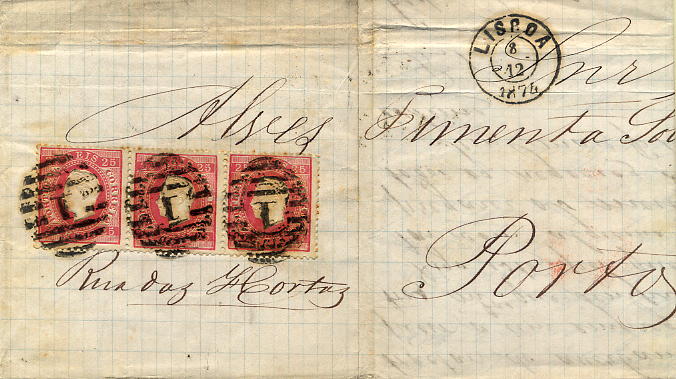 LISBOA
8
12
1874
Snr
Alves Pimenta Sou
REIS 25
CORREIO
1
25
1
25
1
Rua das Hortas
Porto